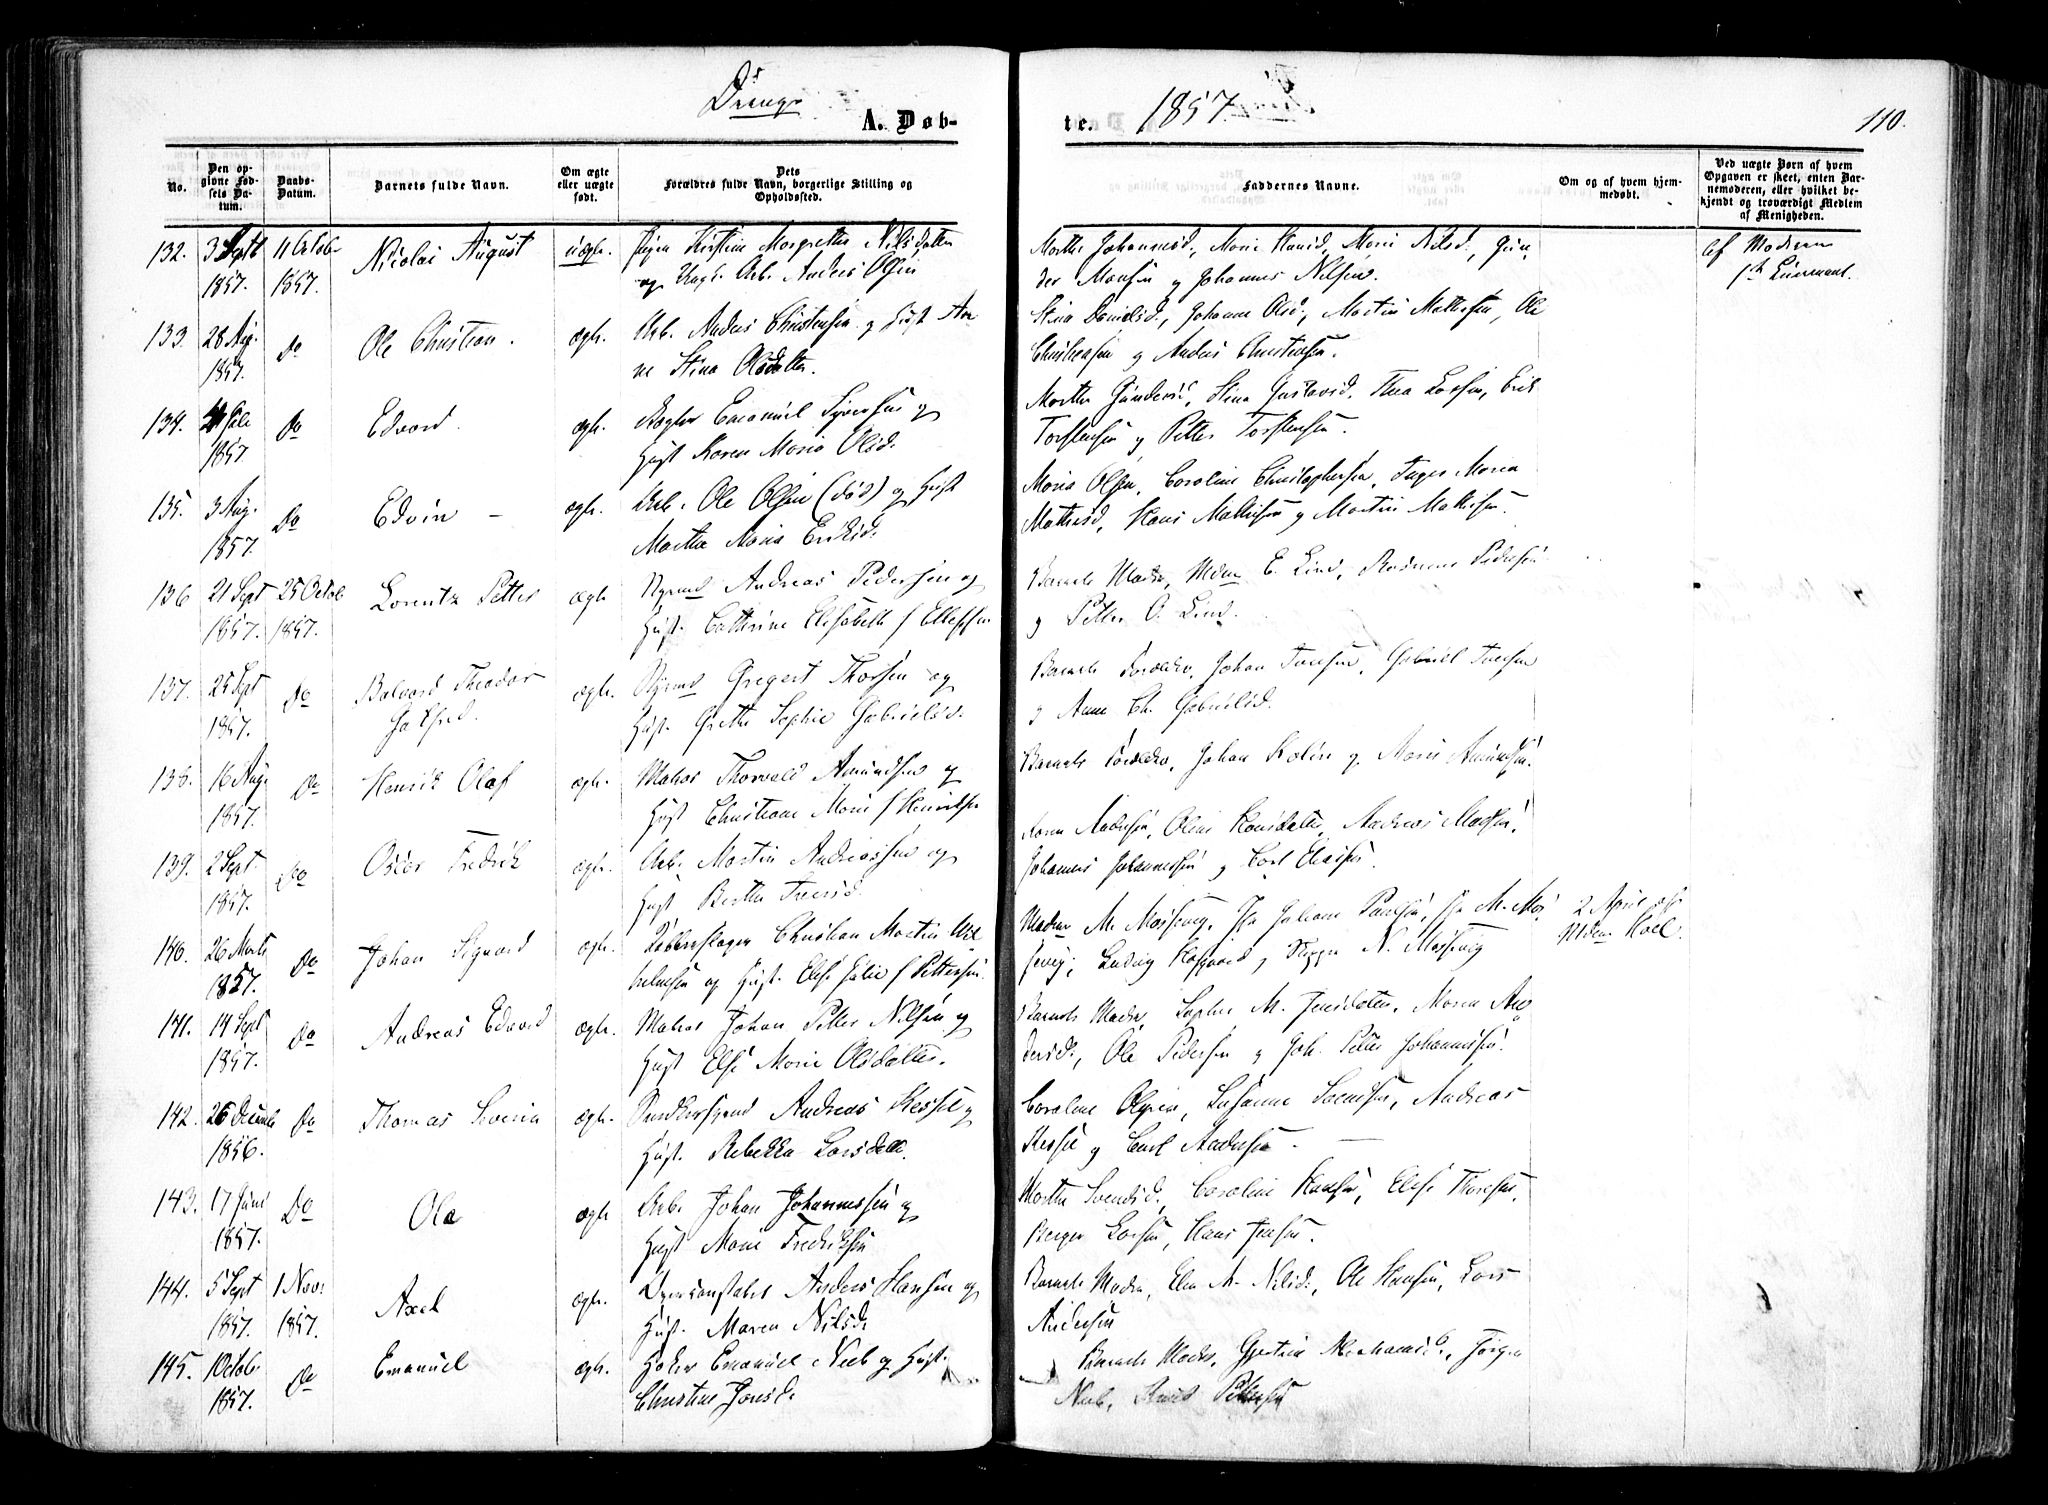 Drenge
A. Døb-
te.
1857
110.
No.
Den op-
givne Fød-
sels Da-
tum.
Daabs-
Datum.
Barnets fulde Navn.
Om ægte
eller uægte
født.
Dets
Forældres fulde Navn, borgerlige Stilling og
Opholdssted.
Faddernes Navne.
Om og af hvem hjem-
medøbt.
Ved uægte Børn af hvem
Opgaven er skeet, enten Bar-
nemoderen, eller hvilket be-
kjendt og troværdigt Medlem
af Menigheden.
132. 3 Sept 11 Octob Nicolai August uægte. Pigen Kirstine Margrethe Nilsdatter
1857. 1857. og Ungk. Arb. Anders Olsen
Marthe Johannesd, Marie Hansd, Marie Nilsd,
Hansen og Johannes Nilsen.
af Moderen
133. 28 Aug. Do Ole Christian. ægte. Arb. Anders Christensen og Hust An
1857. ne Stina Olsdatter.
Stina Danielsd., Johanne Olsd, Martin Mathisen, Ole
Christensen og Anders Christensen.
134. Do Edvard. ægte. Emanuel Syversen og
1857 Hust Karen Maria Olsd.
Marthe Gundersd, Stina Gustavsd, Thea Larsen, Erik
Torstensen og Petter Torstensen.
135. 3 Aug. Do Edvin - ægte. Arb. Ole Olsen (død) og Hust
1857. Marthe Maria Eriksd.
Maria Olsen, Caroline Christophersen, Inger Maria
Mathisd, Hans Mathisen og Martin Mathisen.
136 21 Sept 25 Octob Lorentz Petter ægte Styrmd Andreas Pedersen og
1857. 1857. Hust. Cathrine Elisabeth f Ellefsen
Barnets Moder, Mdme E. Lind, Rasmus Pedersen
og Petter O. Lind.
137. 25 Sept Do Theodor ægte. Styrmd Gregert Thorsen og
1857. Hust. Grethe Sophie Gabrielsd.
Barnets Forældre, Johan Iversen, Gabriel Iversen
og Anne Ch. Gabrielsd.
138. 16 Aug Do Henrik Olaf ægte. Matros Thorvald Amundsen og
1857. Hust Christiane Marie f Henriksen
Barnets Forældre, Johan Kolin og Marie Amundsen.
139. 2 Sept. Do Oscar Fredrik ægte. Arb. Martin Andreassen og
1857. Hust Berthe Iversd.
Karen Andersen, Oline Hansdatter, Andreas Madsen,
Johannes Johannessen og Carl Eliasen.
140. 26 Marts Do Johan Sigvard ægte. Kobberslager Christian Martin Wil
1857. helmsen og Hust. Elise Julie f Pettersen.
Madam M. Mossevig, Jfr Johanne Paulsen, Jfr M. Mos
sevig, Ludvig og Skipper N. Mossevig
2 April af
Mdme Hoel.
141. 14 Sept Do Andreas Edvard ægte. Matros Johan Petter Nilsen og
1857. Hust Else Marie Olsdatter.
Barnets Moder, Sophie M. Jensdatter, Maren An
dersd., Ole Pedersen og Joh. Petter Johannessen.
142. 26 Decemb Do Thomas Severin ægte. Bundtmagersvend Andreas Kessel og
1856. Hust. Rebekka Larsdatt.
Caroline Olsen, Susanne Svendsen, Andreas
Kessel og Carl Andersen.
143. 17 Juni Do Ola ægte Arb. Johan Johannessen og
1857. Hust Marie Fredriksen
Marthe Svendsd, Caroline Hansen, Elise Thorsen,
Berger Larsen, Hans Jensen.
144. 5 Sept 1 Nov. Axel ægte. Overconstabel Anders Hansen og
1857. 1857. Hust. Maren Nilsd.
Barnets Moder, Elen M. Nilsd., Ole Hansen, Lars
Andersen
145. 1 Octob. Do Emanuel ægte. Høker Emanuel Neeb og Hust.
1857. Christine Jonsd.
Barnets Moder, Gjertine Abrahamsd., Jørgen
Neeb, Knud Pettersen